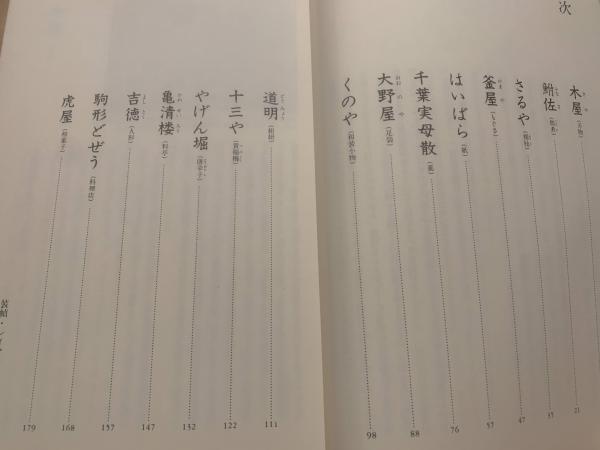 次
木屋（刃物）21
鮒佐（佃煮）35
さるや（楊枝）47
釜屋（もぐさ）57
はいばら（紙）76
千葉実母散（薬）88
大野屋（足袋）98
くのや（和装小物）
道明（組紐）111
十三や（黄楊櫛）122
やげん堀（唐辛子）132
亀清楼（料亭）147
吉徳（人形）157
駒形どぜう（料理店）168
虎屋（和菓子）179
装幀・